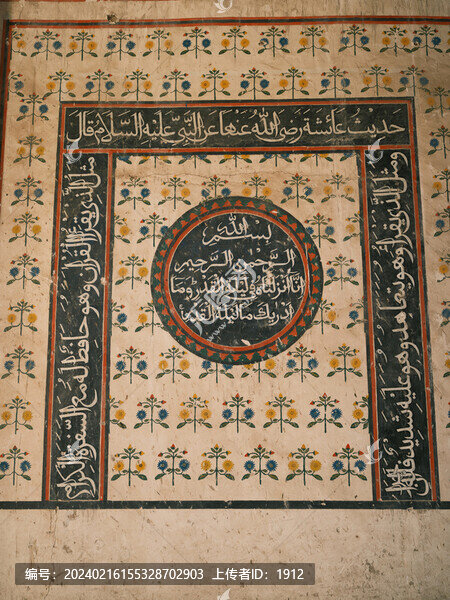 حديث عائشة رضي الله عنها عن النبي عليه السلام قال
مثل الذي يقرأ القرآن وهو حافظ له مع السفرة الكرام
ومثل الذي يقرأ وهو يتعاهده وهو عليه شديد فله
بسم الله
الرحمن الرحيم
إنا أنزلناه في ليلة القدر وما
أدريك ما ليلة القدر
编号：20240216155328702903 上传者ID：1912